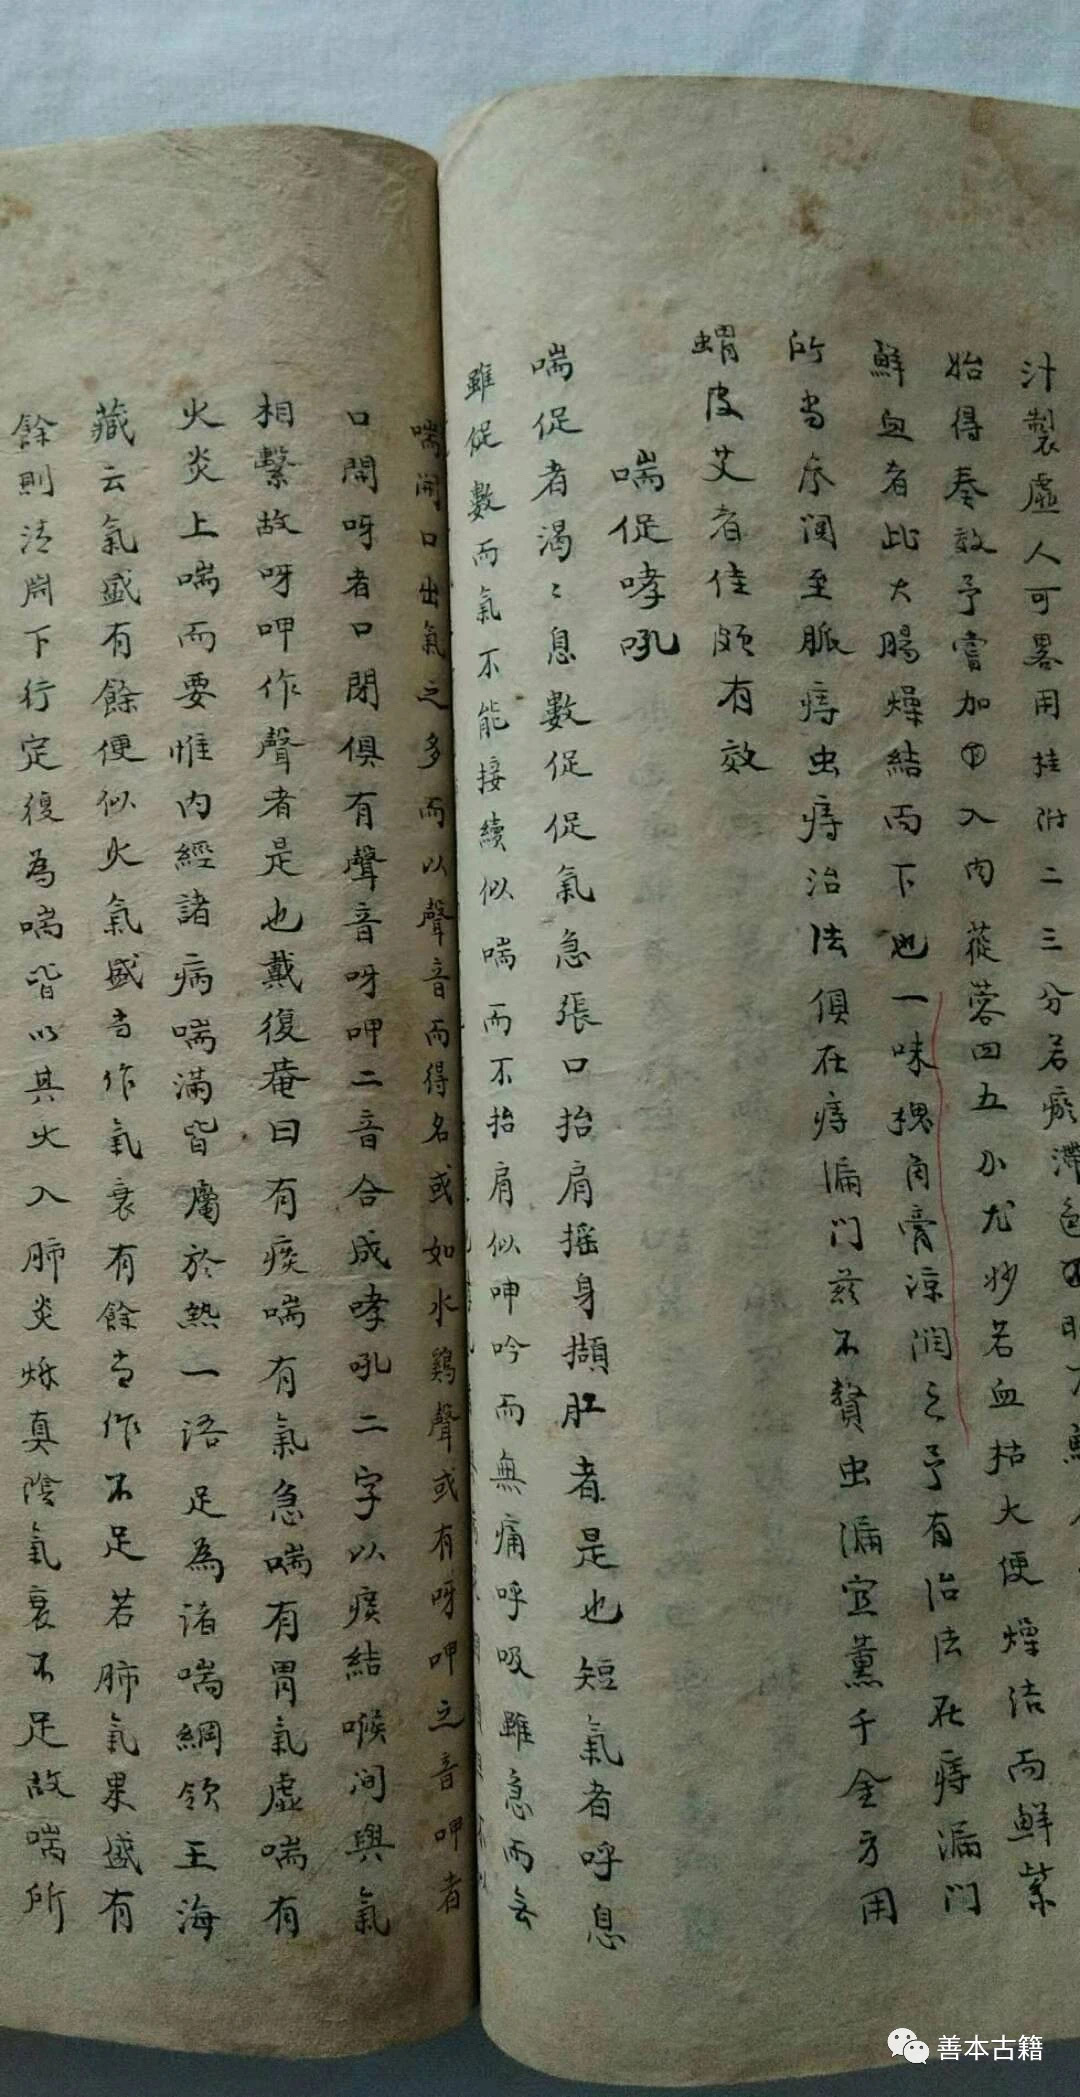 汁製虛人可畧用桂附二三分若瘀滯色
始得奏效予嘗加入肉蓯蓉四五小尤妙若血枯大便燥洁而鮮紫
鮮血者此大腸燥結而下也一味槐角膏涼潤之予有治法在痔漏門
所當序闊至脈痔虫痔治法俱在痔漏门茲不贅虫漏宜薰千金方用
蝟皮艾者佳頗有效
喘促哮吼
喘促者渴〻息數促促氣急張口抬肩摇身擷肚者是也短氣者呼息
雖促數而氣不能接續似喘而不抬肩似呻吟而無痛呼吸雖急而云
喘開口出氣之多而以聲音而得名或如水鷄聲或有呀呷之音呷者
口開呀者口閉俱有聲音呀呷二音合成哮吼二字以痰結喉间與氣
相繫故呀呷作聲者是也戴復菴曰有痰喘有氣急喘有胃氣虛喘有
火炎上喘而要惟内經諸病喘滿皆屬於熱一语足為诸喘綱领王海
藏云氣盛有餘便似火氣盛当作氣衰有餘当作不足若肺氣果盛有
餘則清肅下行定復為喘皆以其火入肺炎烁真陰氣衰不足故喘所
善本古籍